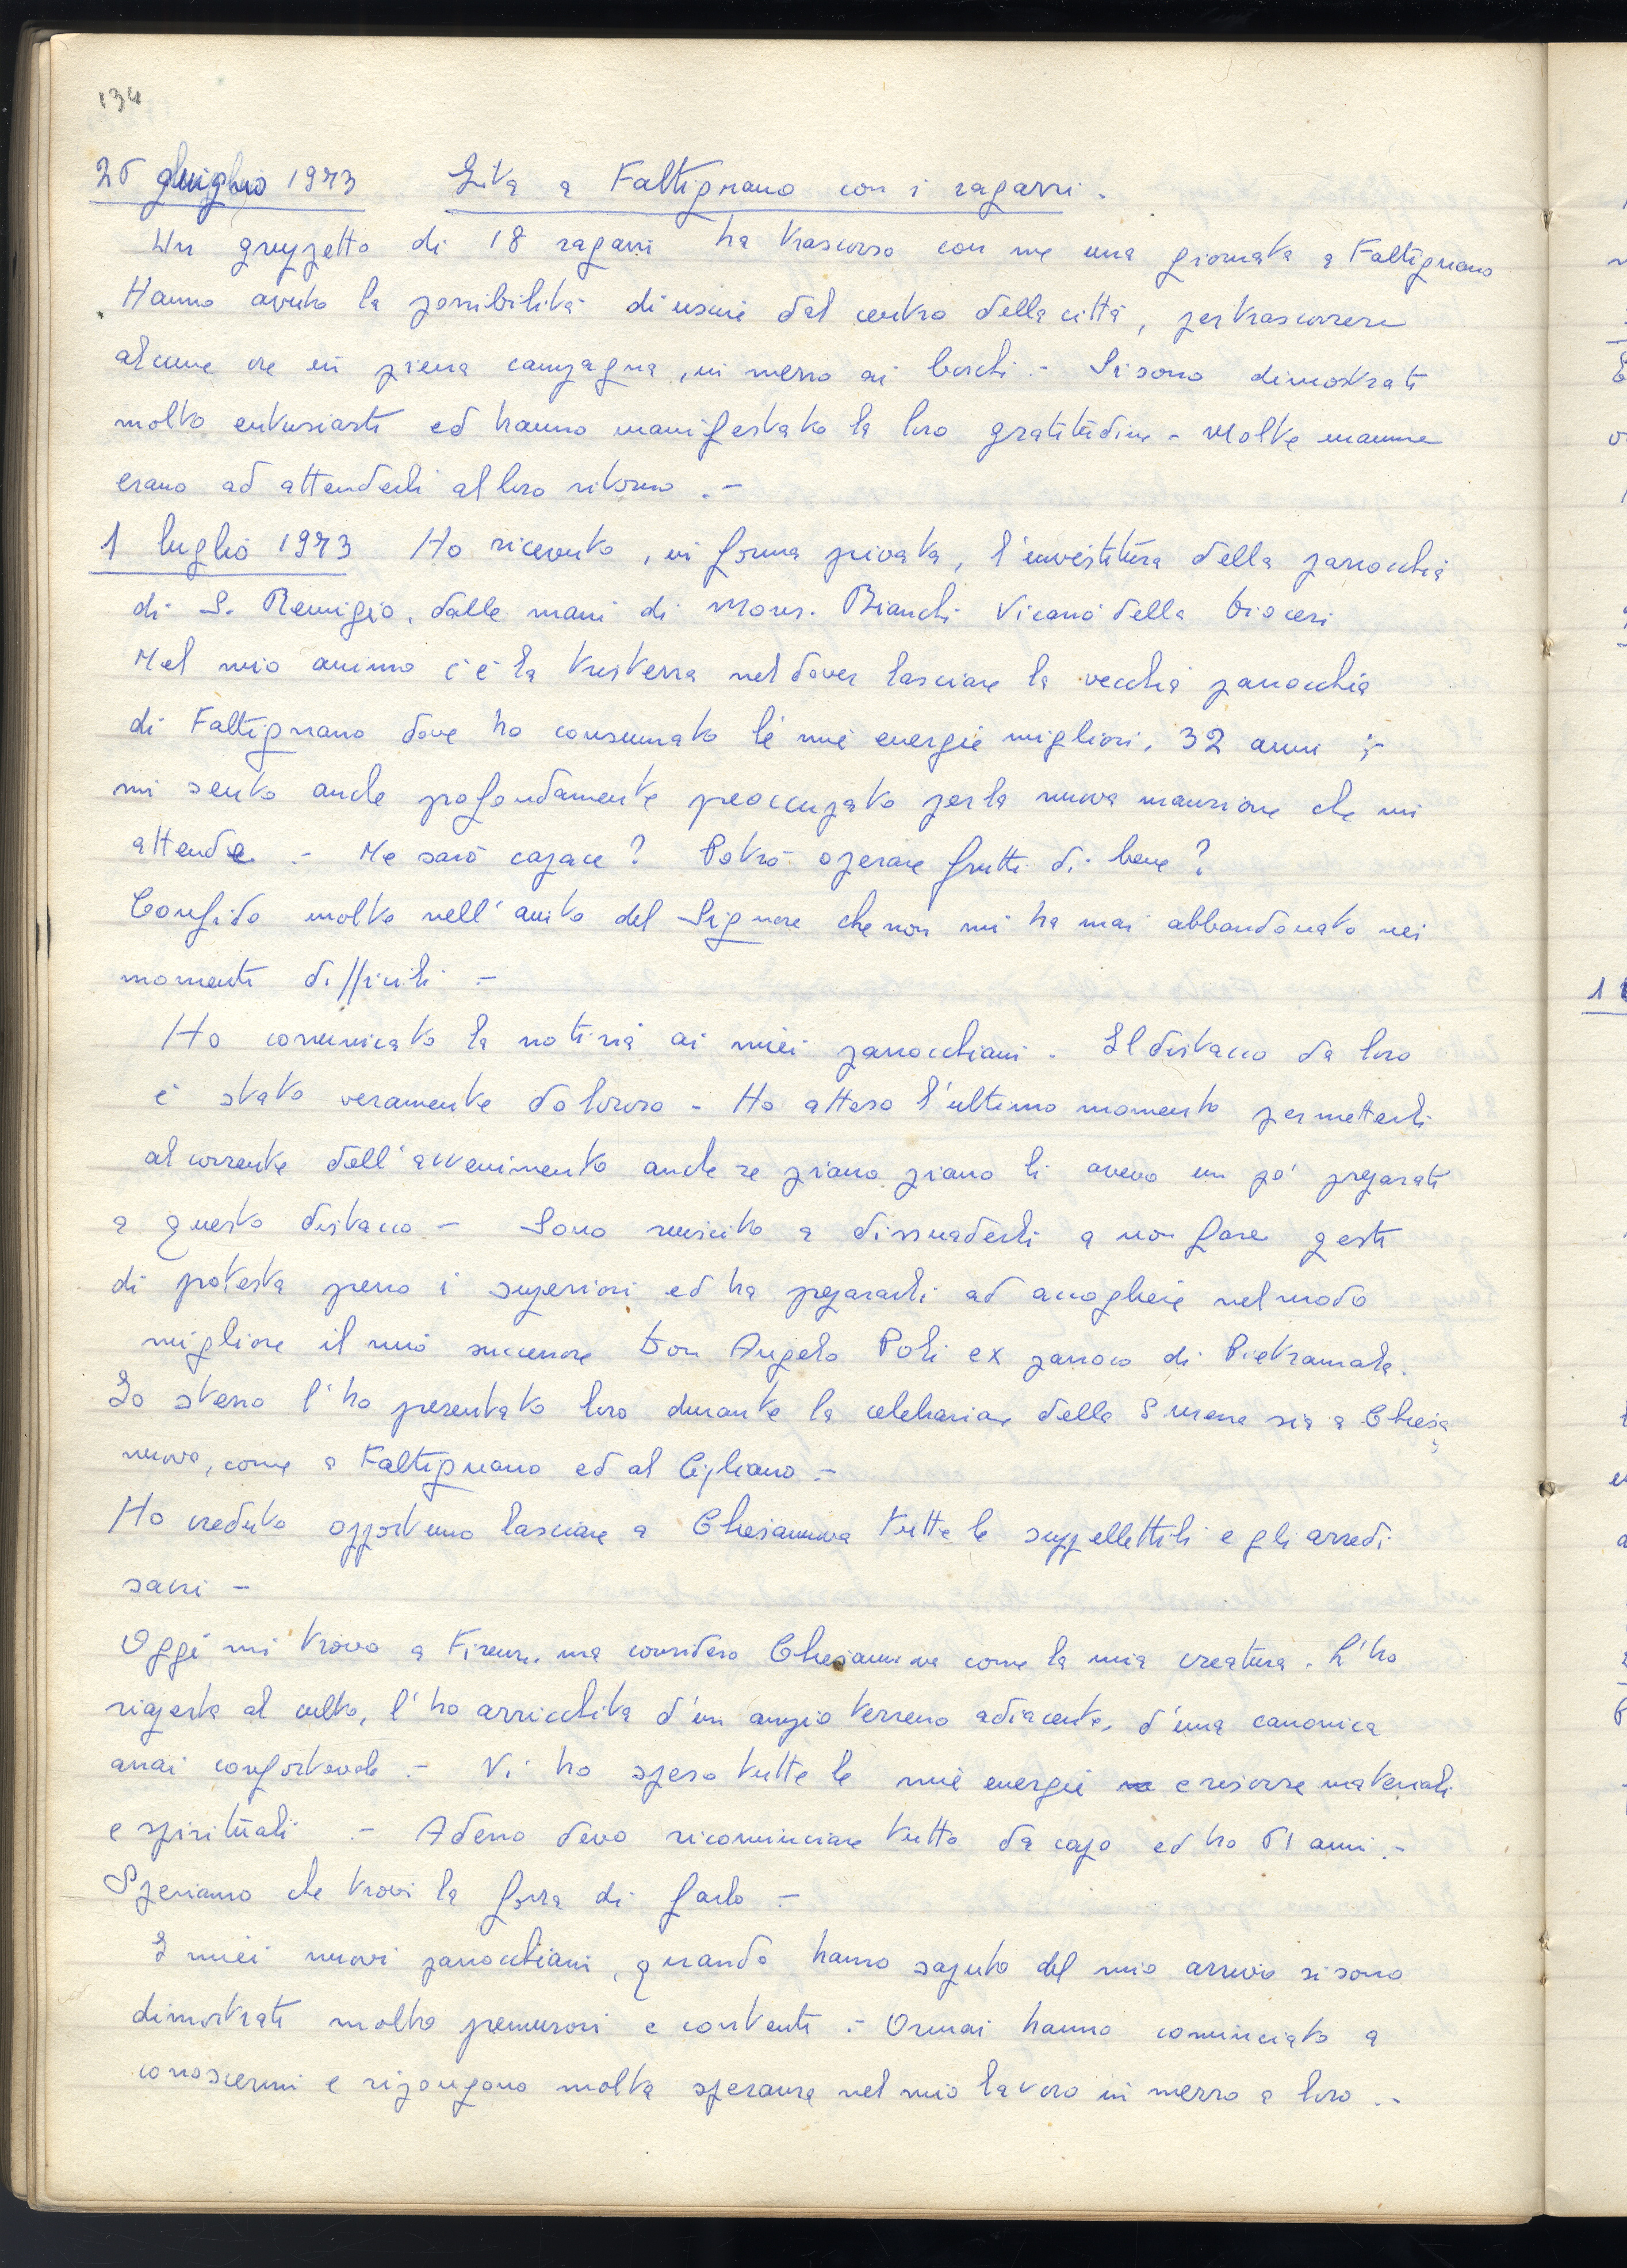 134
25 giugno 1973 Gita a Faltignano con i ragazzi.
Un gruppetto di 18 ragazzi ha trascorso con me una giornata a Faltignano
Hanno avuto la possibilità di uscire dal centro della città, per trascorrere
alcune ore in piena campagna, in mezzo ai boschi.- Si sono dimostrati
molto entusiasti ed hanno manifestato la loro gratitudine - Molte mamme
erano ad attenderli al loro ritorno.-
1 luglio 1973 Ho ricevuto, in forma privata, l'investitura della parrocchia
di S. Remigio, dalle mani di Mons. Bianchi Vicario della Diocesi
Nel mio animo c'è la tristezza nel dover lasciare la vecchia parrocchia
di Faltignano dove ho consumato le mie energie migliori, 32 anni ;-
mi sento anche profondamente preoccupato per la nuova mansione che mi
attende.- Ne sarò capace? Potrò operare frutti di bene?
Confido molto nell'aiuto del Signore che non mi ha mai abbandonato nei
momenti difficili -
Ho comunicato la notizia ai miei parrocchiani - Il distacco da loro
è stato veramente doloroso - Ho atteso l'ultimo momento per metterli
al corrente dell'avvenimento anche se piano piano li avevo un pò preparati
a questo distacco - Sono riuscito a dissuaderli a non fare gesti
di protesta presso i superiori ed ha prepararli ad accogliere nel modo
migliore il mio successore Don Angelo Poli ex parroco di Pietramala.
Io stesso l'ho presentato loro durante la celebrazione della S messa sia a Chiesa
nuova, come a Faltignano ed al Cigliano.-
Ho creduto opportuno lasciare a Chiesanuova tutte le suppellettili e gli arredi
sacri -
Oggi mi trovo a Firenze, ma considero Chiesanuova come la mia creatura. L'ho
riaperta al culto, l'ho arricchita d'un ampio terreno adiacente, d'una canonica
assai confortevole.- Vi ho speso tutte le mie energie e risorse materiali
e spirituali.- Adesso devo ricominciare tutto da capo ed ho 51 anni.-
Speriamo che trovi la forza di farlo -
I miei nuovi parrocchiani, quando hanno saputo del mio arrivo si sono
dimostrati molto premurosi e contenti.- Ormai hanno cominciato a
conoscermi e ripongono molta speranza nel mio lavoro in mezzo a loro.-